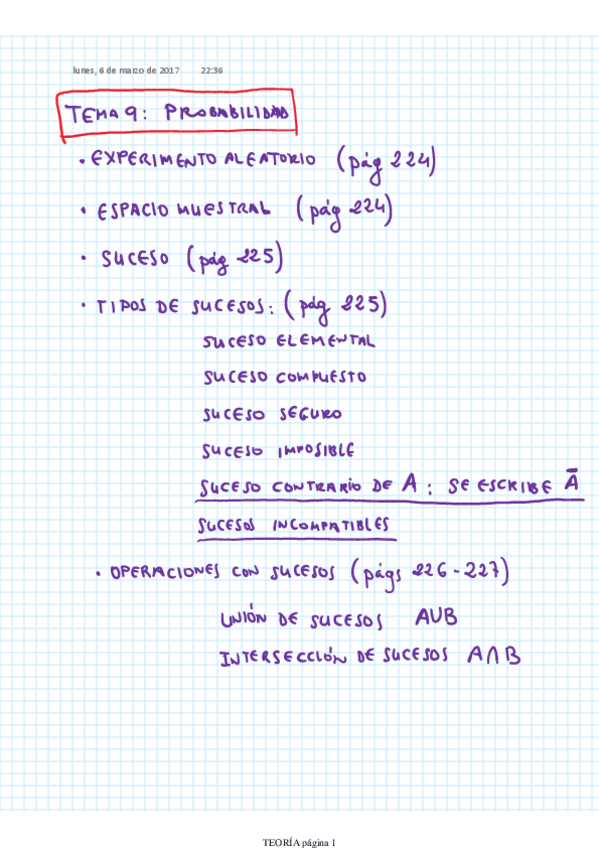 lunes, 6 de marzo de 2017 22:36
TEMA 9: PROBABILIDAD
• EXPERIMENTO ALEATORIO (pág 224)
• ESPACIO MUESTRAL (pág 224)
• SUCESO (pág 225)
• TIPOS DE SUCESOS: (pág 225)
SUCESO ELEMENTAL
SUCESO COMPUESTO
SUCESO SEGURO
SUCESO IMPOSIBLE
SUCESO CONTRARIO DE A: SE ESCRIBE Ā
SUCESOS INCOMPATIBLES
• OPERACIONES CON SUCESOS (págs 226-227)
UNIÓN DE SUCESOS A∪B
INTERSECCIÓN DE SUCESOS A∩B
TEORÍA página 1